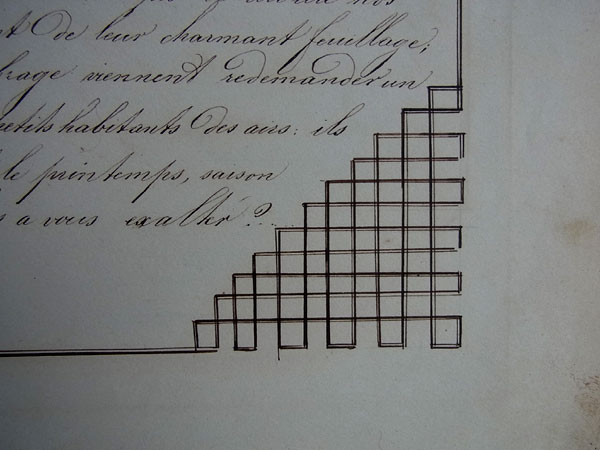 de leur charmant feuillage;
viennent redemander un
petits habitants des airs: ils
le printemps, saison
a vous exalter?..